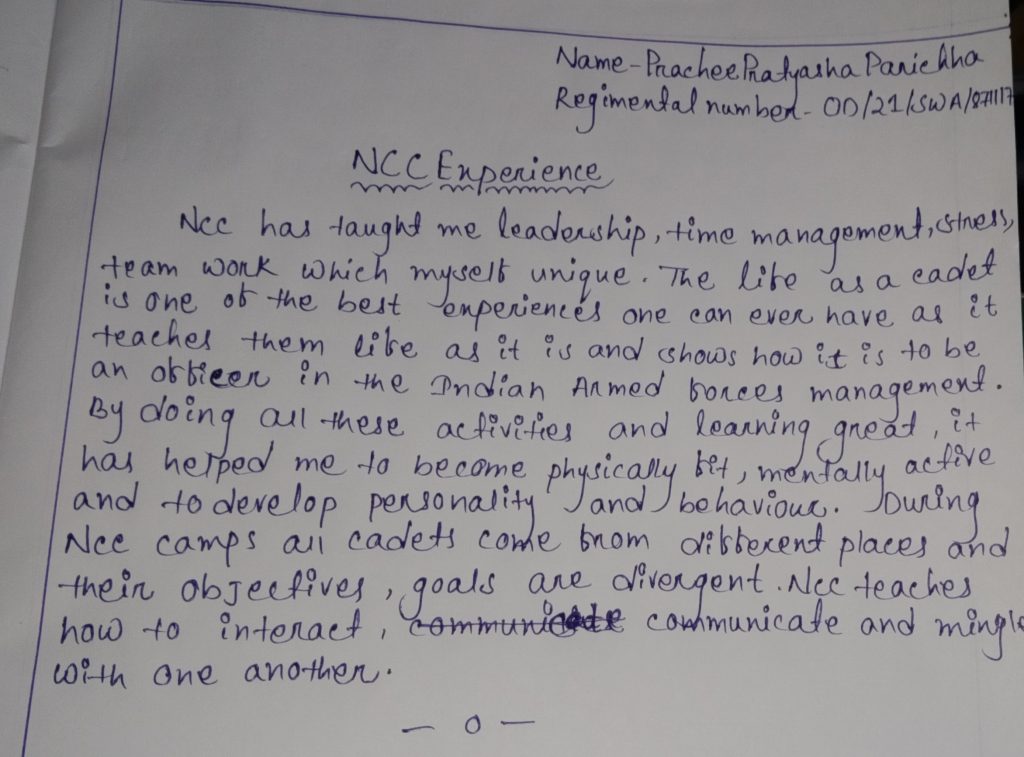 Name - Prachee Pratyasha Parichha
Regimental number - OD/21/SWA/871117
NCC Experience
Ncc has taught me leadership, time management, stress,
team work which myself unique. The life as a cadet
is one of the best experiences one can ever have as it
teaches them life as it is and shows how it is to be
an officer in the Indian Armed forces management.
By doing all these activities and learning great, it
has helped me to become physically fit, mentally active
and to develop personality and behaviour. During
Ncc camps all cadets come from different places and
their objectives, goals are divergent. Ncc teaches
how to interact, communicate communicate and mingle
with one another.
— 0 —